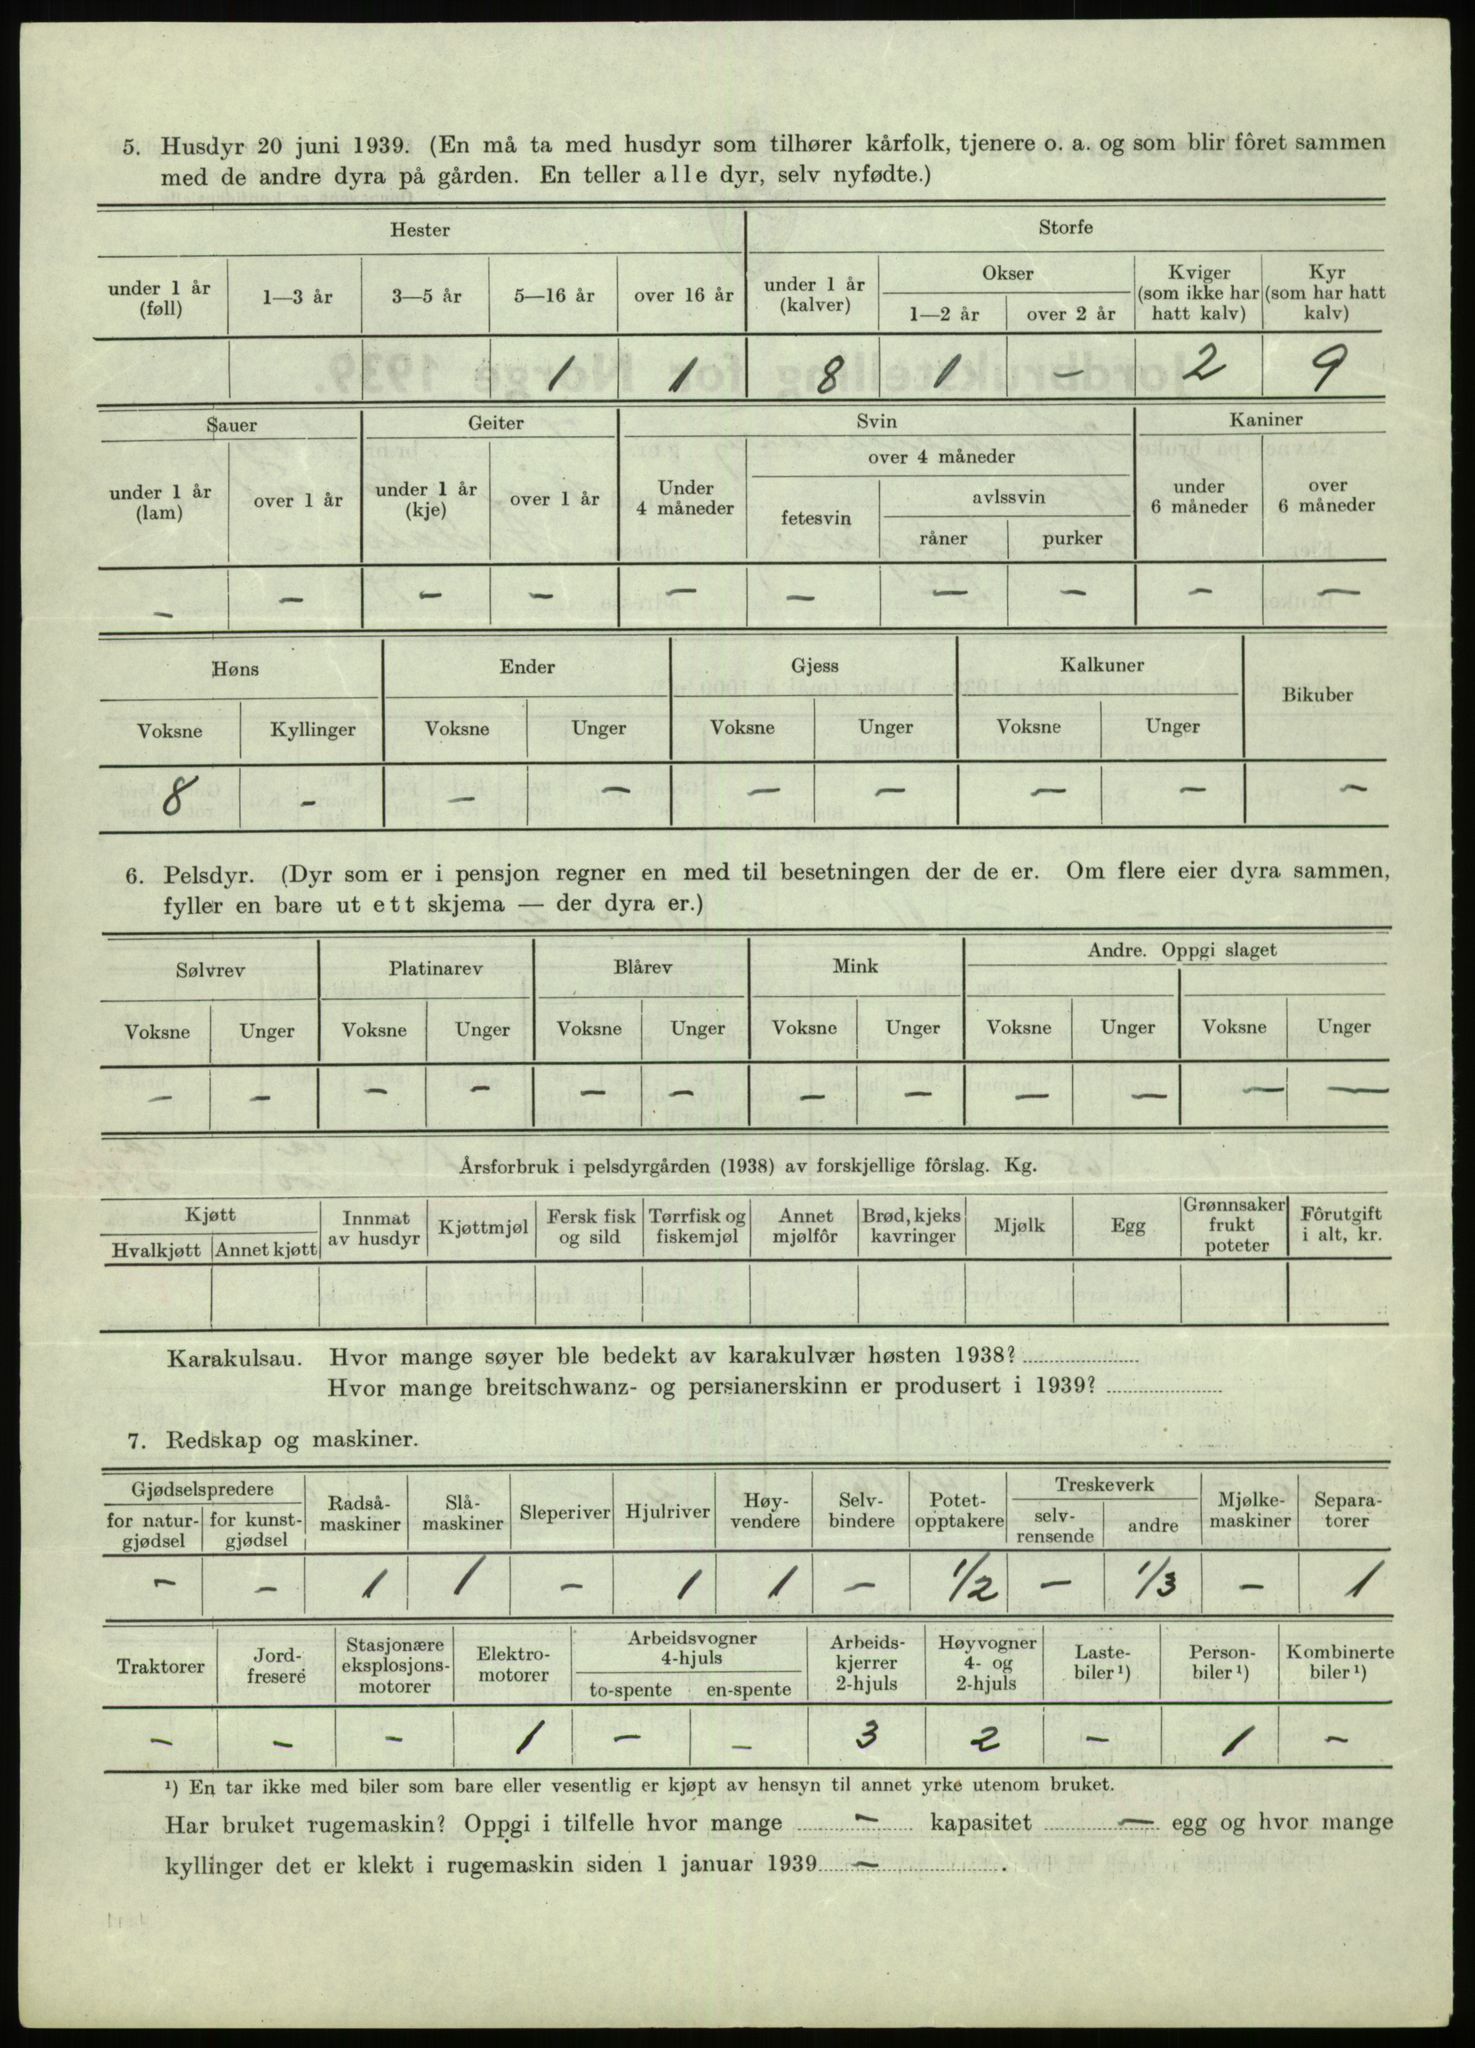 5. Husdyr 20 juni 1939. (En må ta med husdyr som tilhører kårfolk, tjenere o. a. og som blir fôret sammen
med de andre dyra på gården. En teller alle dyr, selv nyfødte.)
Hester Storfe
under 1 år (føll) 1—3 år 3—5 år 5—16 år over 16 år under 1 år (kalver) Okser 1—2 år over 2 år Kviger (som ikke har hatt kalv) Kyr (som har hatt kalv)
1 1 8 1 — 2 9
Sauer Geiter Svin Kaniner
under 1 år (lam) over 1 år under 1 år (kje) over 1 år Under 4 måneder over 4 måneder fetesvin avlssvin råner purker under 6 måneder over 6 måneder
— — — — — — — — — —
Høns Ender Gjess Kalkuner Bikuber
Voksne Kyllinger Voksne Unger Voksne Unger Voksne Unger
8 — — — — — — — —
6. Pelsdyr. (Dyr som er i pensjon regner en med til besetningen der de er. Om flere eier dyra sammen,
fyller en bare ut ett skjema — der dyra er.)
Sølvrev Platinarev Blårev Mink Andre. Oppgi slaget
Voksne Unger Voksne Unger Voksne Unger Voksne Unger Voksne Unger Voksne Unger
— — — — — — — — — — — —
Årsforbruk i pelsdyrgården (1938) av forskjellige fôrslag. Kg.
Kjøtt Hvalkjøtt Annet kjøtt Innmat av husdyr Kjøttmjøl Fersk fisk og sild Tørrfisk og fiskemjøl Annet mjølfôr Brød, kjeks kavringer Mjølk Egg Grønnsaker frukt poteter Fôrutgift i alt, kr.
Karakulsau. Hvor mange søyer ble bedekt av karakulvær høsten 1938?
Hvor mange breitschwanz- og persianerskinn er produsert i 1939?
7. Redskap og maskiner.
Gjødselspredere for natur-gjødsel for kunst-gjødsel Radså-maskiner Slå-maskiner Sleperiver Hjulriver Høy-vendere Selv-bindere Potet-opptakere Treskeverk selv-rensende andre Mjølke-maskiner Separa-torer
— — 1 1 — 1 1 — 1/2 — 1/3 — 1
Traktorer Jord-fresere Stasjonære eksplosjons-motorer Elektro-motorer Arbeidsvogner 4-hjuls to-spente en-spente Arbeids-kjerrer 2-hjuls Høyvogner 4- og 2-hjuls Laste-biler¹) Person-biler¹) Kombinerte biler¹)
— — — 1 — — 3 2 — 1 —
¹) En tar ikke med biler som bare eller vesentlig er kjøpt av hensyn til annet yrke utenom bruket.
Har bruket rugemaskin? Oppgi i tilfelle hvor mange — kapasitet — egg og hvor mange
kyllinger det er klekt i rugemaskin siden 1 januar 1939 — .